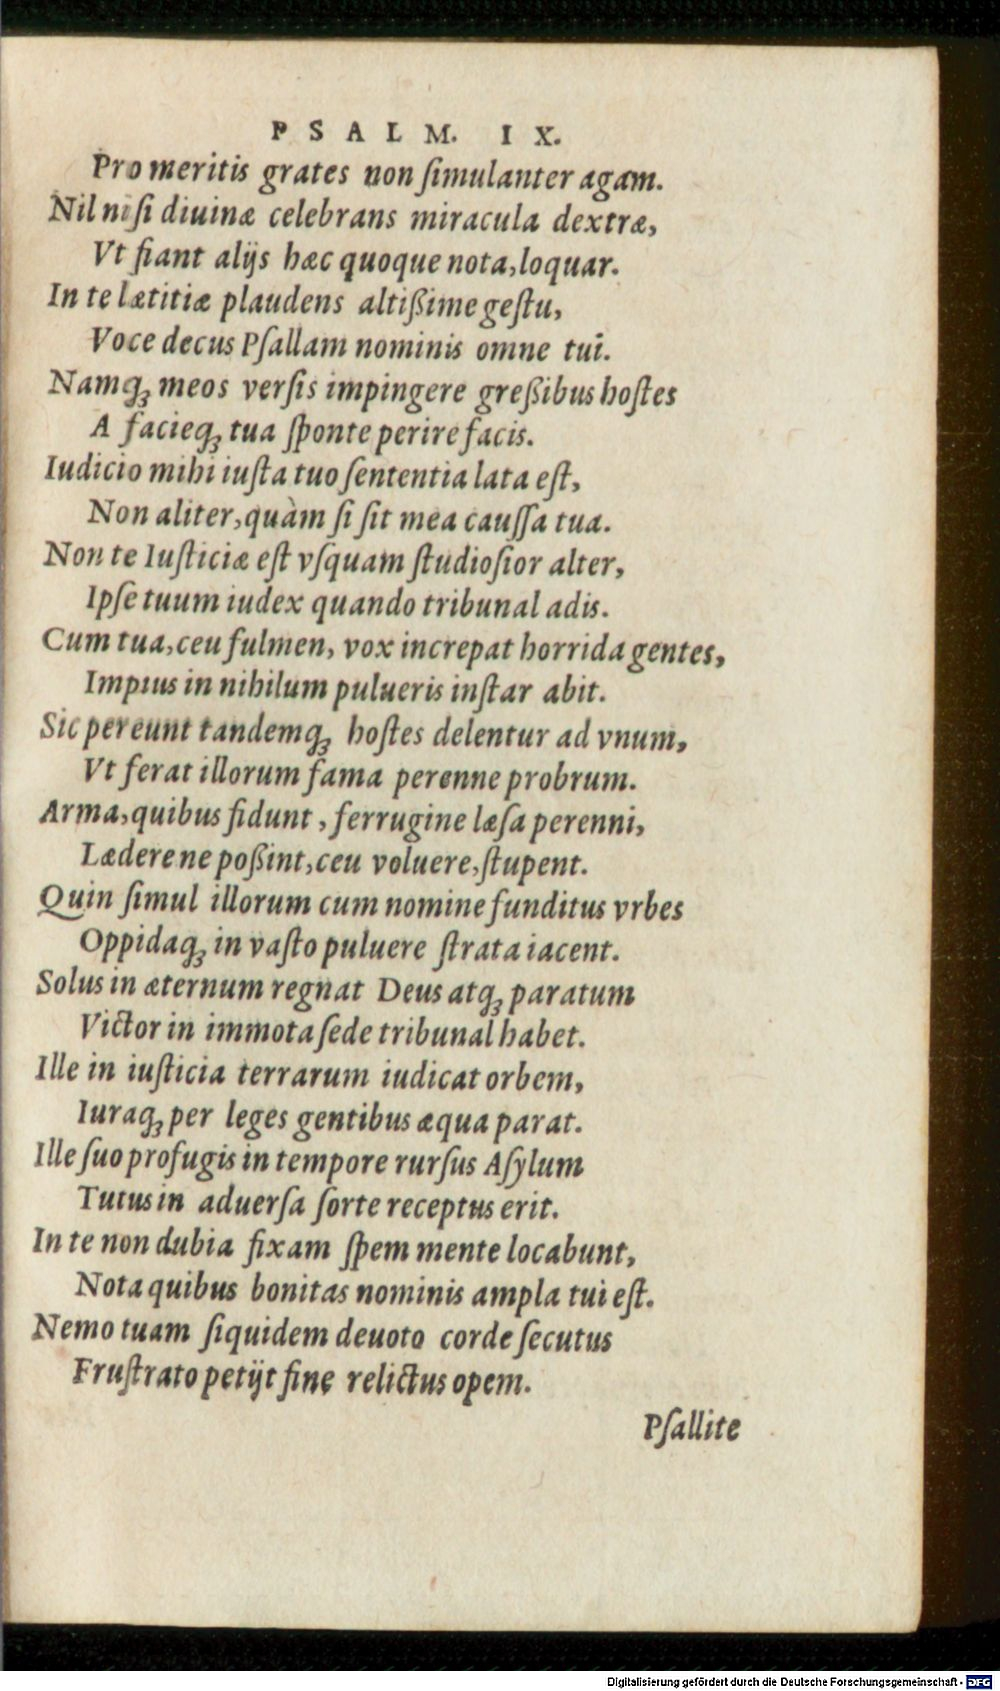 PSALM. IX.
Pro meritis grates non ſimulanter agam.
Nil niſi diuinæ celebrans miracula dextræ,
Vt fiant alijs hæc quoque nota, loquar.
In te lætitiæ plaudens altißime geſtu,
Voce decus Pſallam nominis omne tui.
Namq́ꝫ meos verſis impingere greßibus hoſtes
A facieq́ꝫ tua ſponte perire facis.
Iudicio mihi iuſta tuo ſententia lata eſt,
Non aliter, quàm ſi ſit mea cauſſa tua.
Non te Iuſticiæ eſt vſquam ſtudioſior alter,
Ipſe tuum iudex quando tribunal adis.
Cum tua, ceu fulmen, vox increpat horrida gentes,
Impius in nihilum pulueris inſtar abit.
Sic pereunt tandemq́ꝫ hoſtes delentur ad vnum,
Vt ferat illorum fama perenne probrum.
Arma, quibus fidunt, ferrugine læſa perenni,
Lædere ne poßint, ceu voluere, ſtupent.
Quin ſimul illorum cum nomine funditus vrbes
Oppidaq́ꝫ in vaſto puluere ſtrata iacent.
Solus in æternum regnat Deus atq́ꝫ paratum
Victor in immota ſede tribunal habet.
Ille in iuſticia terrarum iudicat orbem,
Iuraq́ꝫ per leges gentibus æqua parat.
Ille ſuo profugis in tempore rurſus Aſylum
Tutus in aduerſa ſorte receptus erit.
In te non dubia fixam ſpem mente locabunt,
Nota quibus bonitas nominis ampla tui eſt.
Nemo tuam ſiquidem deuoto corde ſecutus
Fruſtrato petijt fine relictus opem.
Pſallite
Digitalisierung gefördert durch die Deutsche Forschungsgemeinschaft - DFG